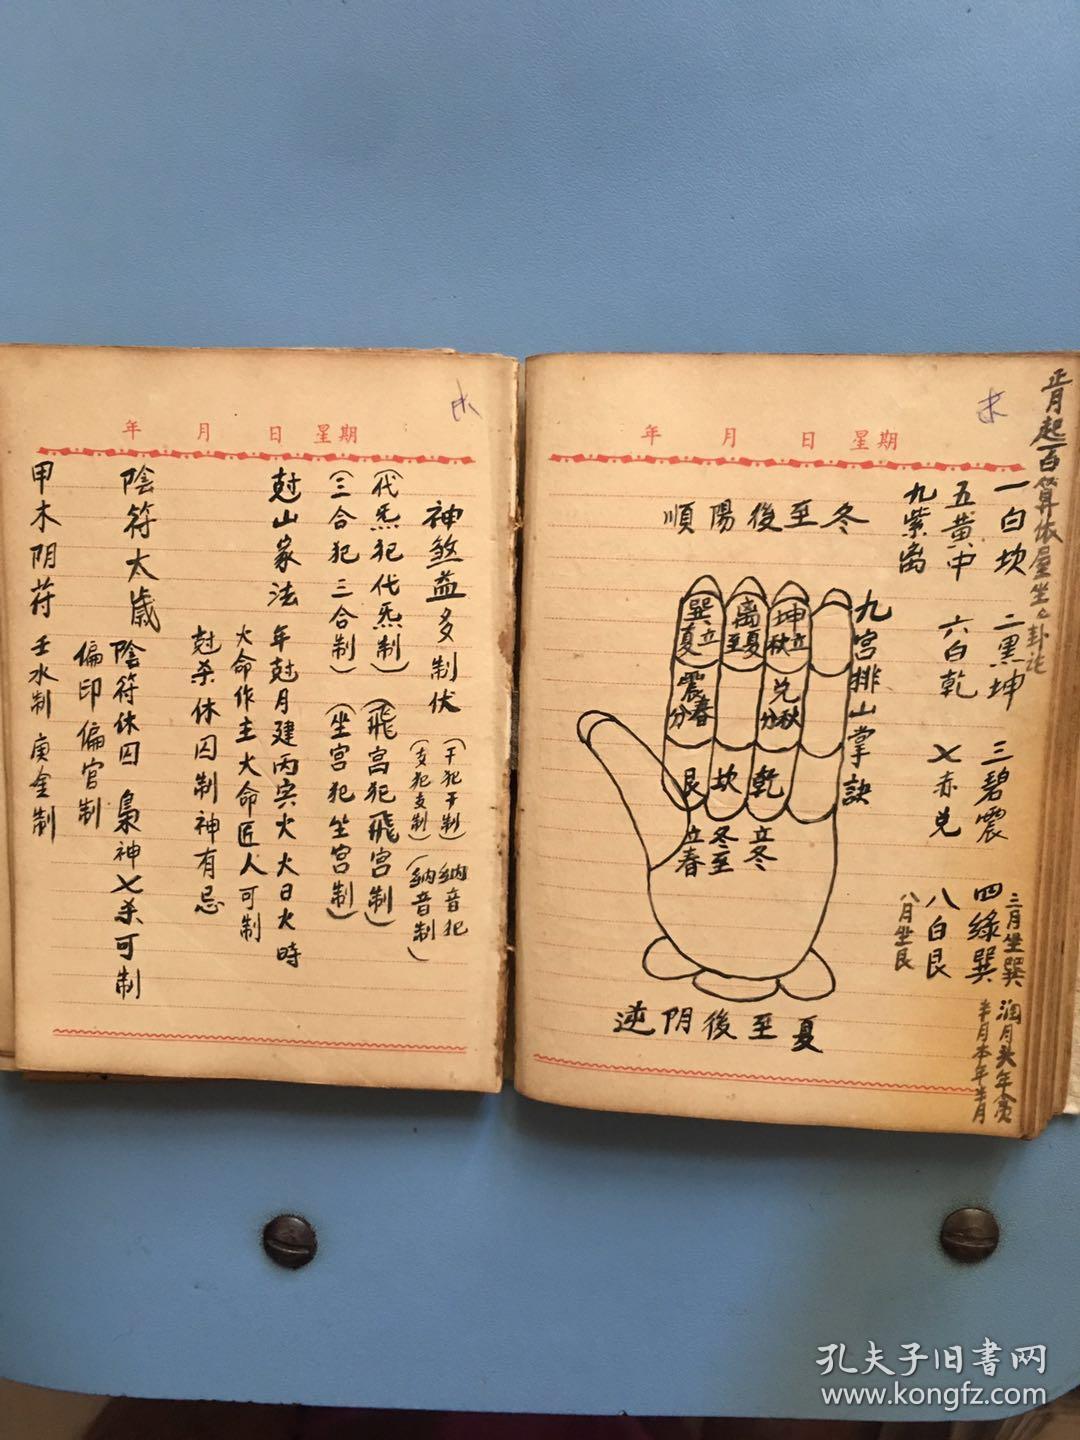 正月起百算依屋坐卦
年 月 日 星期
一白坎 二黑坤 三碧震 四綠巽
三月坐巽
五黄中 六白乾 七赤兑 八白艮
九紫离
八月坐艮
半月本年半月
冬至後陽順
九宫排山掌訣
坤
立秋
离
夏至
巽
立夏
兑
秋分
震
春分
乾
坎
艮
立冬
冬至
立春
夏至後阴逆
年 月 日 星期
神煞益多制伏
(干犯干制)
(支犯支制)
(納音犯納音制)
(代炁犯代炁制) (飛宫犯飛宫制)
(三合犯三合制) (坐宫犯坐宫制)
尅山家法
年尅月建丙寅火火日火時
大命作主大命匠人可制
尅杀休囚制神有忌
陰符太歲
陰符休囚 梟神七杀可制
偏印偏官制
甲木阴苻 壬水制 庚金制
孔夫子旧書网
www.kongfz.com